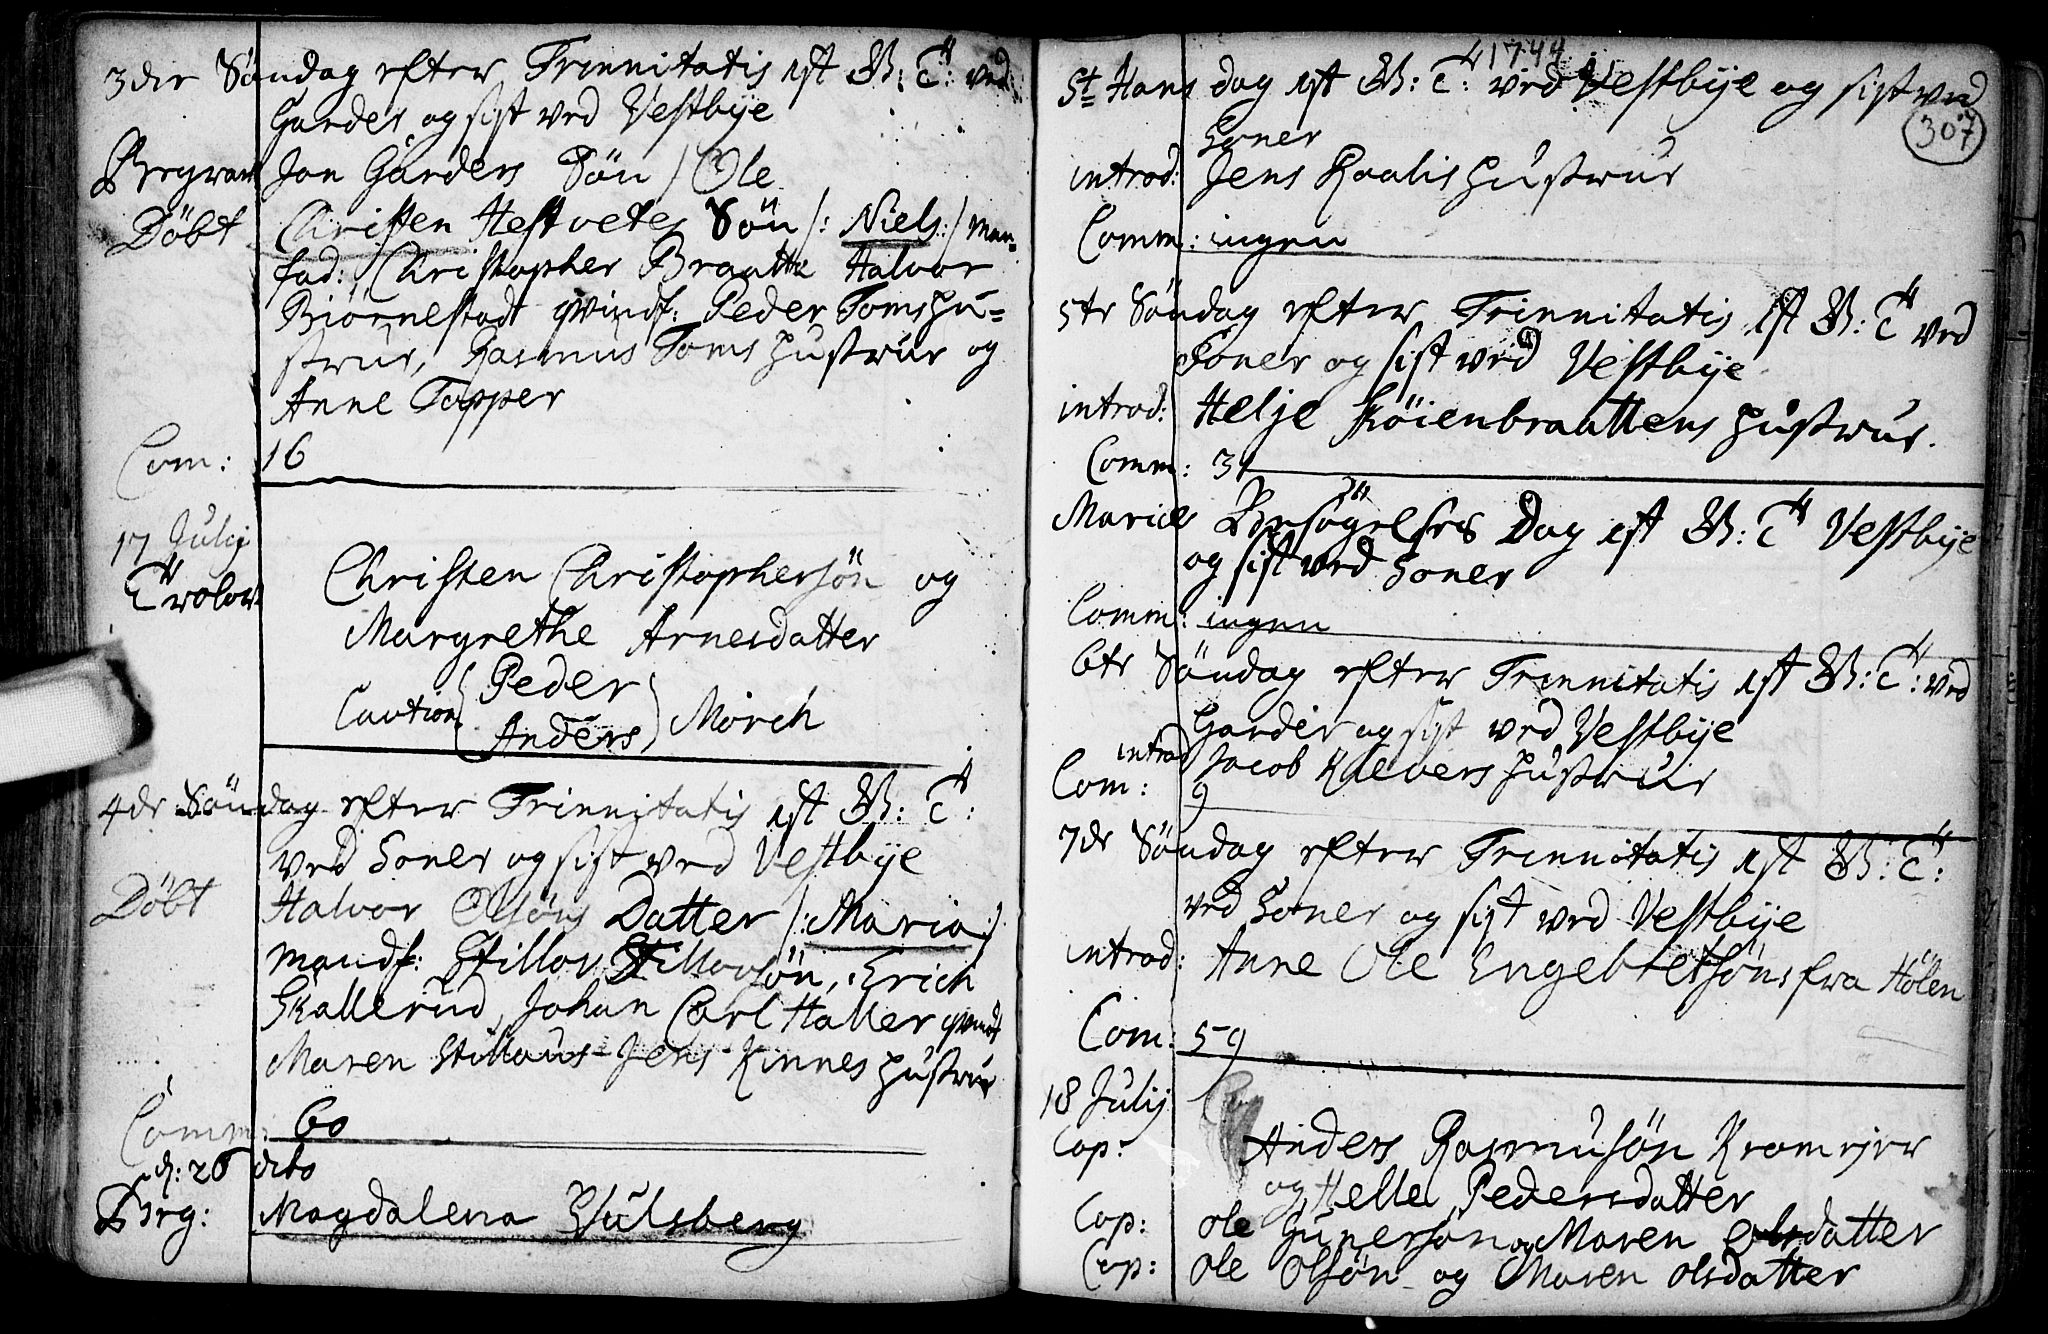 3die Söndag efter Trinnitatis est B: T: ved
Garder og sist ved Vestbye
Begravet Jon Gärders Sön / Ole
Döbt Christen Hestvetes Sön /: Niels :/ man=
fad: Christopher Braatte Halvor
Biörnestadt qvindf: Peder Toms hu=
strue, Rasmus Toms hustrue og
Anne Topper
Com: 16
17 Julij
Trolov: Christen Christophersön og
Margrethe Arnesdatter
Caution (Peder
Anders) Mörch
4de Söndag efter Trinnitatis est B: T:
ved Soner og sist ved Vestbye
Döbt Halvor Olsöns Datter /: Maria :/
mandf: Stillov Stillovsön, Erich
Skallerud, Johan Carl Haller qvindf
Maren Stillovs - Jens Kinnes hustrue
Comm: 60
d: 26 dito
Beg: Magdalena Stulsberg
1744
307
St Hans dag est B: T: ved Vestbye og sist ved
Soner
introd: Jens Raalis hustrue
Comm: ingen
5te Söndag efter Trinnitatis est B: T ved
Soner og sist ved Vestbye
introd: Helje Köienbraattens hustrue.
Comm: 31
Mariæ Besögelses Dag est B: T Vestbye
og sist ved Soner
Comm: ingen
6te Söndag efter Trinnitatis est B: T: ved
Garder og sist ved Vestbye
introd Jacob Klevers hustrue
Com: 9
7de Söndag efter Trinnitatis est B: T:
ved Soner og sist ved Vestbye
introd: Anne Ole Engebretsöns fra Hölen
Com: 59
18 Julij
Cop: Anders Rasmusön Kromejer
og Helle Pedersdatter
Cop: Ole Gunersön og Maren Olsdatter
Cop: Ole Olsön og Maren Olsdatter